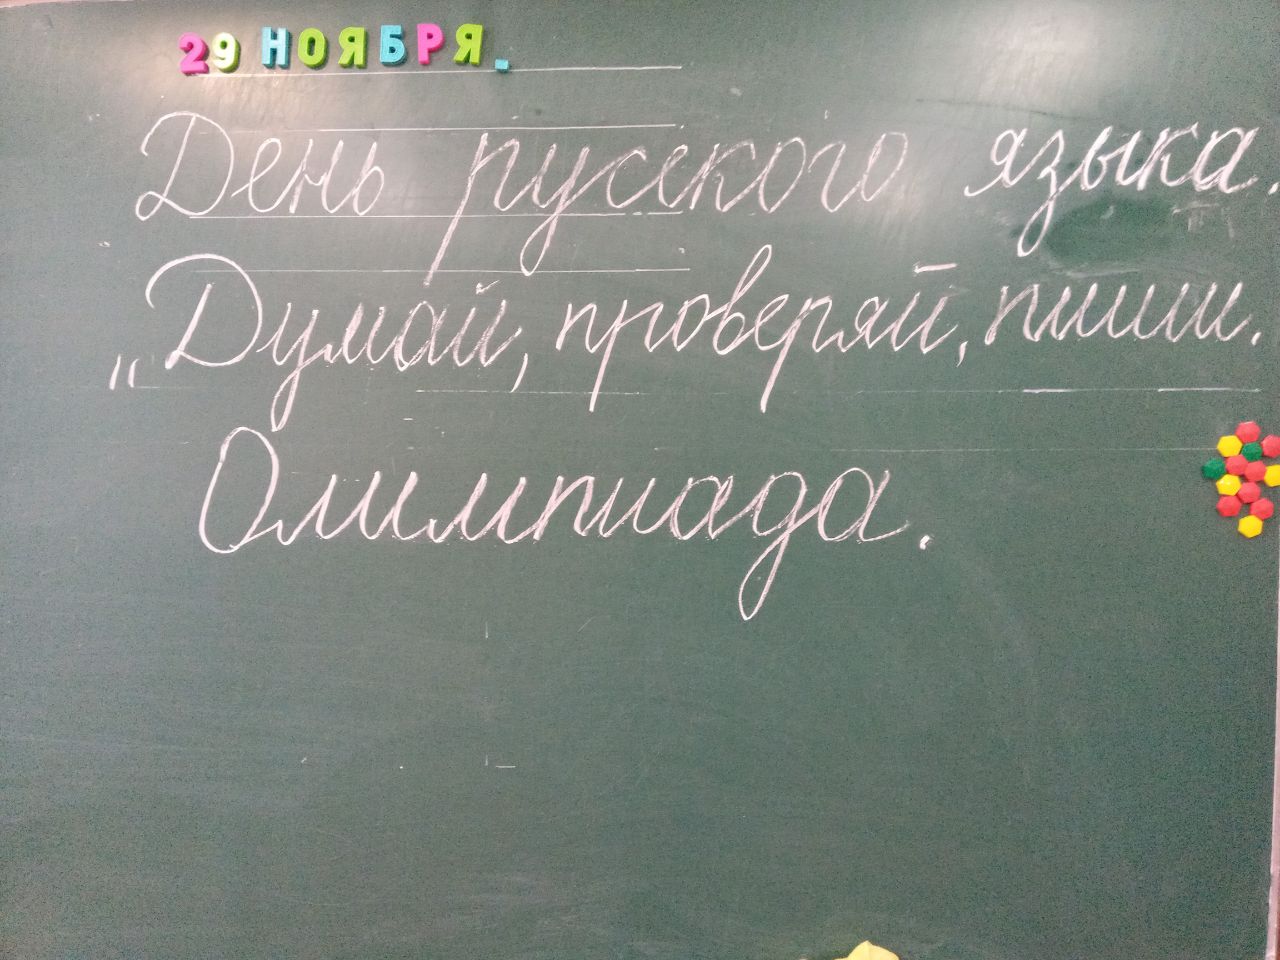 29 НОЯБРЯ.
День русского языка.
„Думай, проверяй, пиши.
Олимпиада.